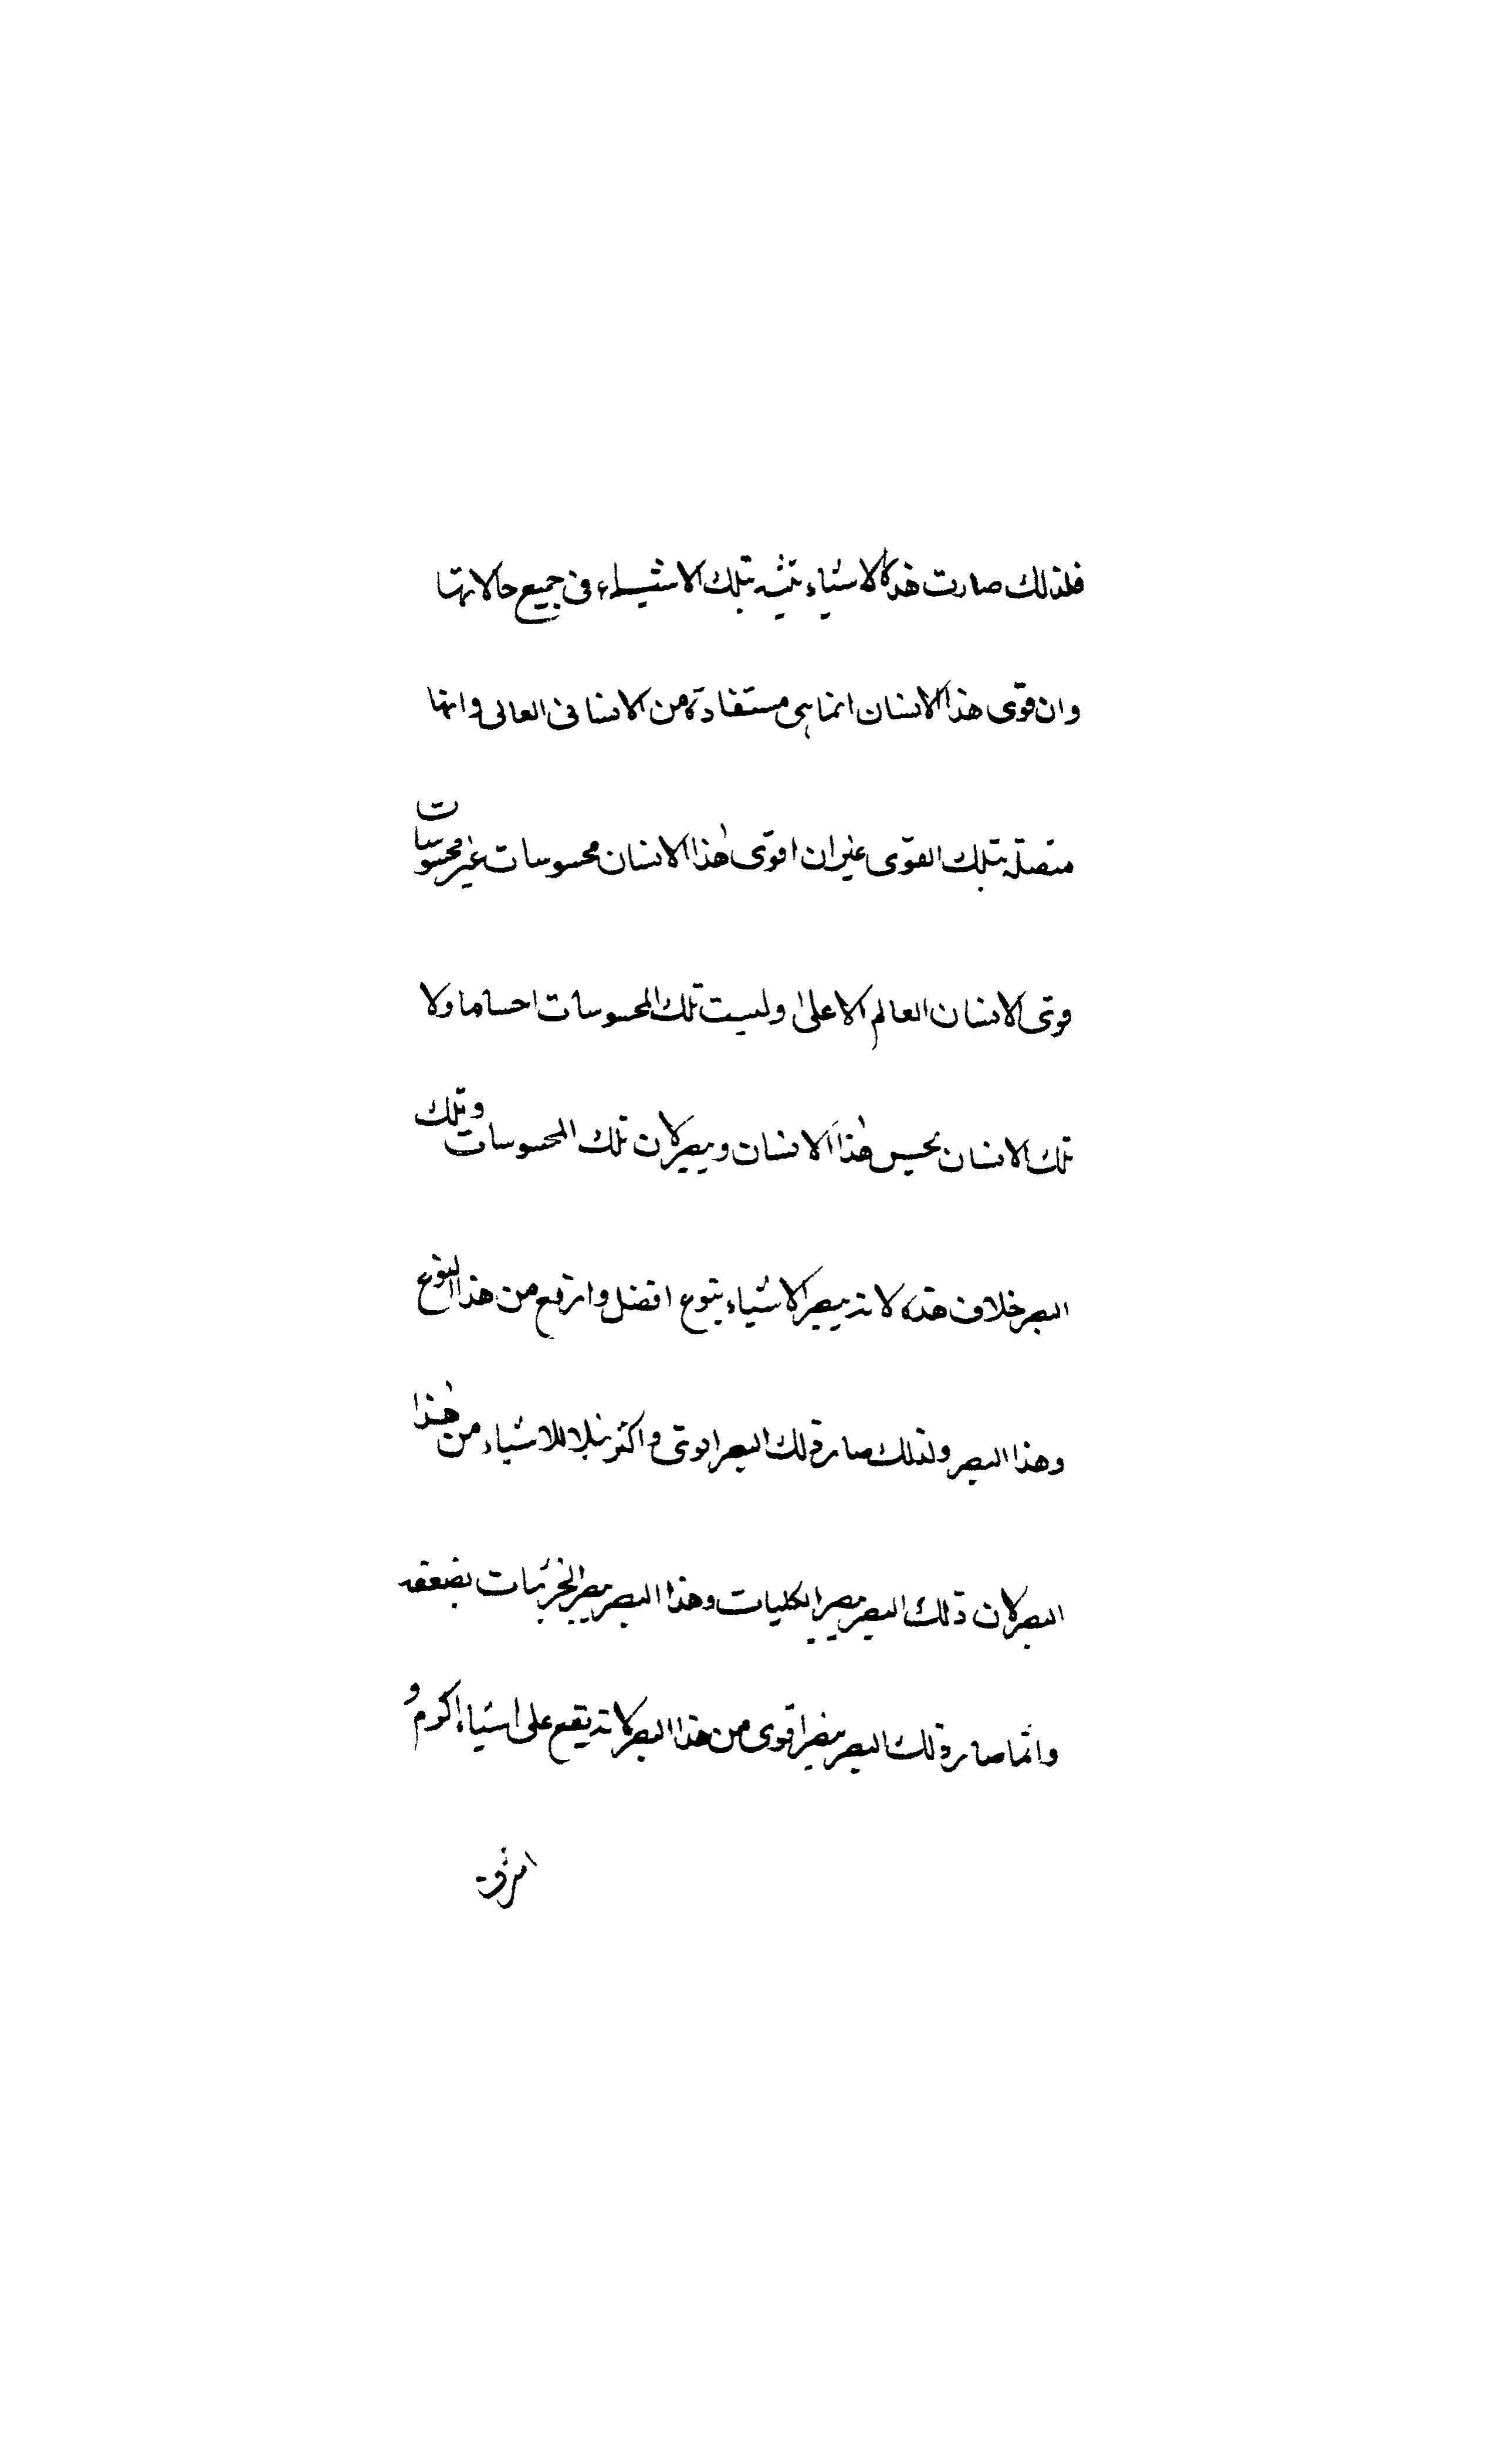 فلذلك صارت هذه الاشياء تشبه بتلك الاشياء فى جميع حالاتها
وان قوى هذا الانسان انما هى مستفادة من الانسانى العالى وانها
متصلة بتلك القوى غير ان اقوى هٰذا الانسان محسوسات غير محسوسات
قوى الانسان العالم الاعلىٰ وليست تلك المحسوسات احساما ولا
تلك الانسان يحس هٰذا الانسان ويبصر لان تلك المحسوسات وتلك
البصر خلاف هذه لانه يبصر الاشياء بنوع افضل وارفع من هذا النوع
وهذا البصر ولذلك صار ذلك البصر اقوى واكثر نيلا للاشياء من هٰذا
البصر لان ذلك البصر يبصر الكليات وهذا البصر يبصر الجزئيات بضعفه
وانما صار ذلك البصر بصرا قوى من هذا البصر لانه يقع على اشياء اكرم و
اشرف